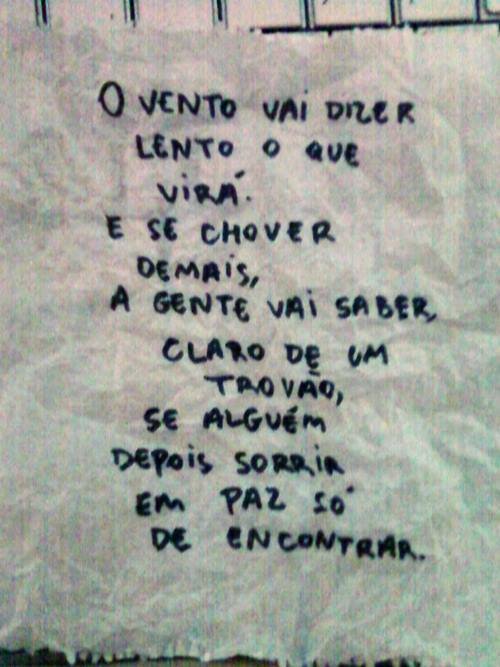 O VENTO VAI DIZER
LENTO O QUE
VIRÁ.
E SE CHOVER
DEMAIS,
A GENTE VAI SABER,
CLARO DE UM
TROVÃO,
SE ALGUÉM
DEPOIS SORRIR
EM PAZ SÓ
DE ENCONTRAR.